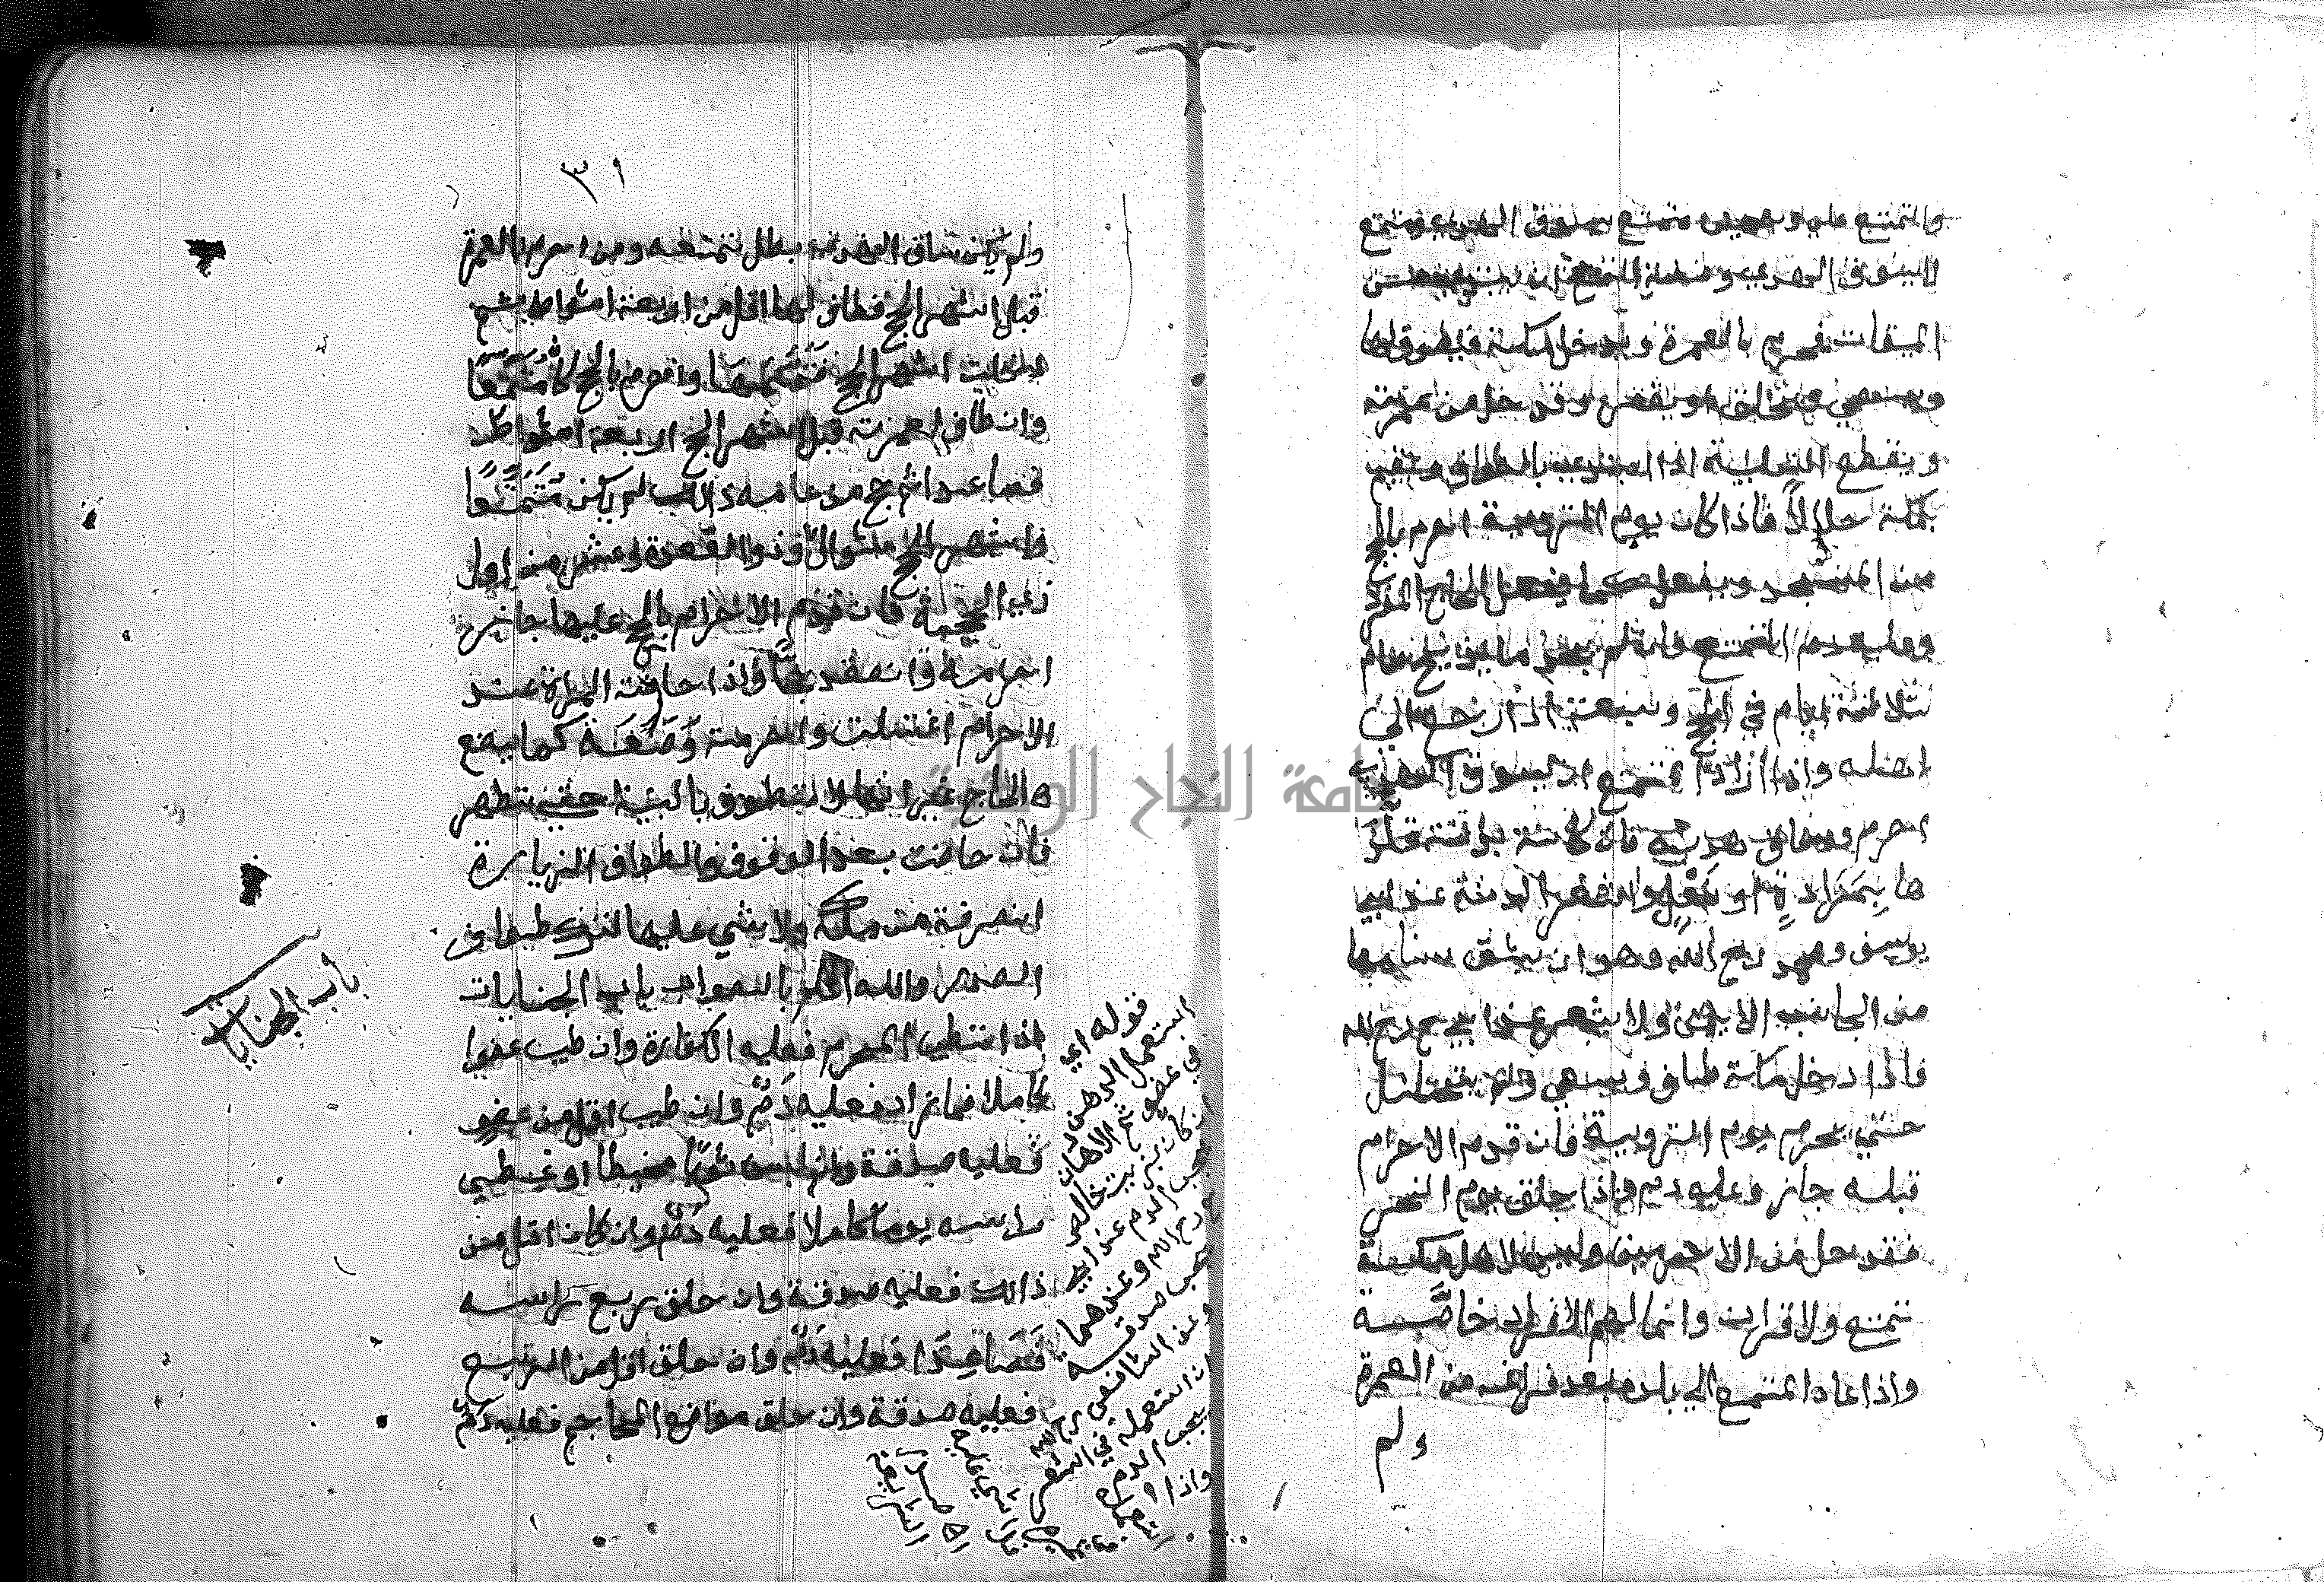 والمتمتع على وجهين متمتع يسوق الهدي ومتمتع
لا يسوق الهدي وصفة التمتع ان يبتدي من
الميقات فيحرم بالعمرة ويدخل مكة فيطوف لها
ويسعي ويحلق او يقصر وقد حل من عمرته
ويقطع التلبية اذا ابتدي بالطواف ويقيم
بمكة حلالاً فاذا كان يوم التروية احرم بالحج
من المسجد ويفعل كما يفعل الحاج المفرد
وعليه دم التمتع فان لم يجد ما يذبح صام
ثلاثة ايام في الحج وسبعة اذا رجع الي
اهله واذا اراد المتمتع ان يسوق الهدي
احرم وساق هديه فان كانت بدنة قلد
ها بِمَزَادةٍ او نَعْلٍ واشعر البدنة عند ابي
يوسف ومحمد رح الله وهو ان يشق سنامها
من الجانب الايمن ولا يشعر عند ابي ح رح الله
فاذا دخل مكة طاف ويسعي ولا يتحلل
حتي يحرم يوم التروية فان قدم الاحرام
قبله جاز وعليه دم واذا حلق يوم النحر
فقد حل من الاحرمين وليس لاهل مكة
تمتع ولا قران وانما لهم الافراد خاصَّة
واذا عاد المتمتع الي بلده بعد فراغه من العمرة
ولم
٣١
ولم يكن ساق الهدي بطل تمتعه ومن احرم بالعمرة
قبل اشهر الحج فطاف لها اقل من اربعة اشواط ثم
دخلت اشهر الحج فَتَمَّمَهَا واحرم بالحج كان مُتَمَتِّعًا
وان طاف لعمرته قبل اشهر الحج اربعة اشواط
فصاعدا ثم حج من عامه ذالك لم يكن مُتَمَتِّعًا
واشهر الحج شوال وذوا القعدة وعشر من اول
ذي الحجة فان قدم الاحرام بالحج عليها جاز
احرامه وانعقد حجا واذا حاضت المراة عند
الاحرام اغتسلت واحرمت وَصَنَعَة كما يصنع
ه الحاج غير انها لا تطوف بالبيت حتي تطهر
فان حاضت بعد الوقوف والطواف الزيارة
انصرفة من مكة ولا شي عليها لترك طواف
الصدر والله اعلم بالصواب باب الجنايات
اذا تطيب المحرم فعليه الكفارة وان طيب عضوا
كاملا فما زاد فعليه دَمٌ وان طيب اقل من عضو
فعليه صدقة وان لبس ثوبًا مخيطا او غطي
راسه يوما كاملا فعليه دَمٌ وان كان اقل من
ذالك فعليه صدقة وان حلق ربع راسه
فَصَاعِدًا فعليه دَمٌ وان حلق اقل من الربع
فعليه صدقة وان حلق مواضع المحاجم فعليه دَمٌ
باب الجنايات
قوله اي
استعمل الدهن
في عضو ثم الادهان
ان كان بزيت خالص
يجب الدم عند ابي
ح رح الله وعندهما
يجب صدقه
وعن الشافعي رح الله
ان استعمله في الشعر
يجب الدم
واذا استعمله